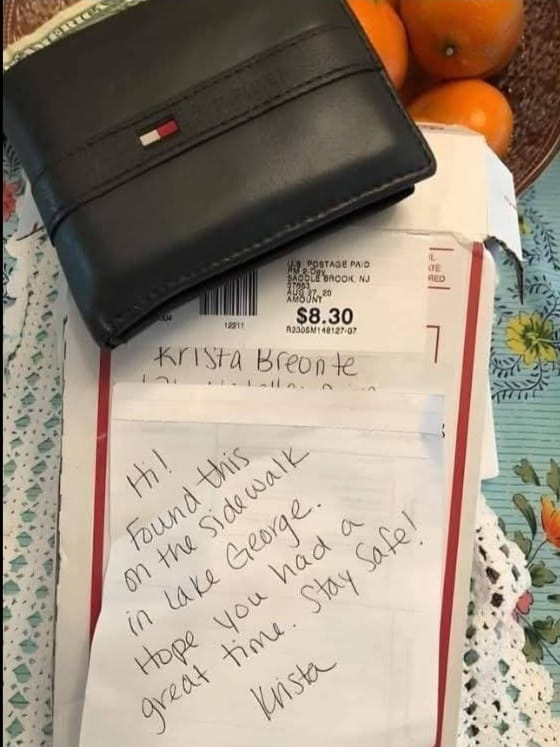 U.S. POSTAGE PAID
PM 2-Day
SADDLE BROOK, NJ
07663
AUG 27, 20
AMOUNT
$8.30
12211
R2305M148127-07
Krista Breonte
Hi!
Found this
on the sidewalk
in Lake George.
Hope you had a
great time. Stay Safe!
Krista